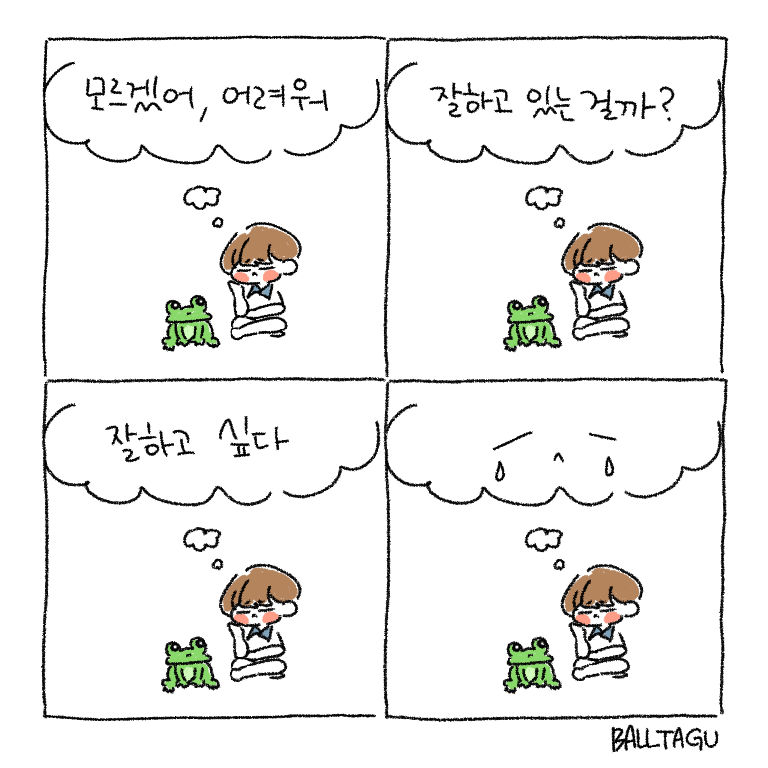 모르겠어, 어려워
잘하고 있는 걸까?
잘하고 싶다
BALLTAGU